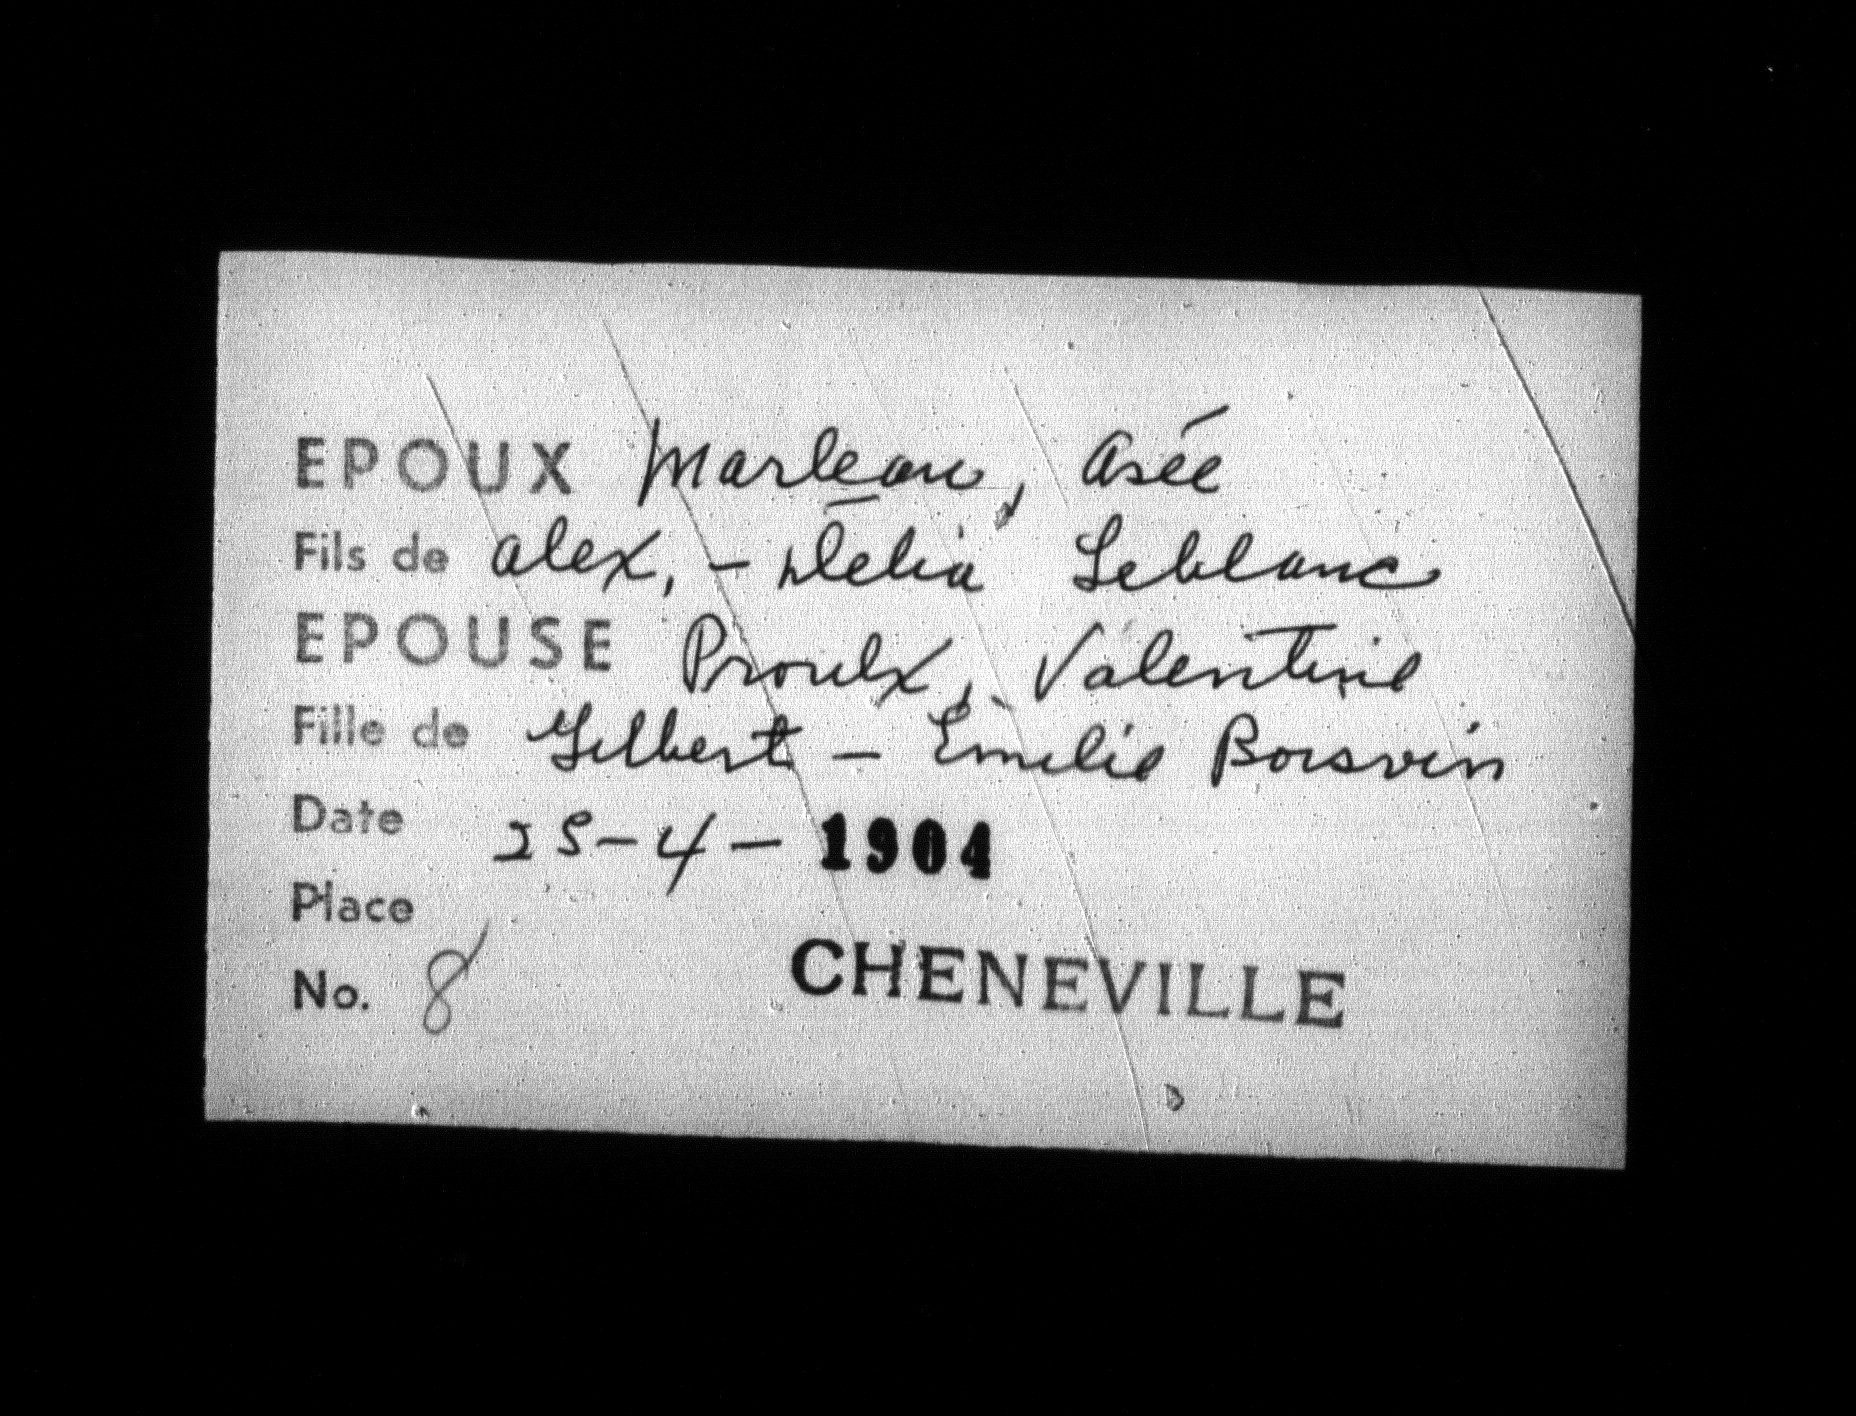 EPOUX Marleau, Asée
Fils de Alex, - Délia Leblanc
EPOUSE Proulx, Valentine
Fille de Gilbert - Emilie Boisvin
Date 25-4-1904
Place
CHENEVILLE
No. 8